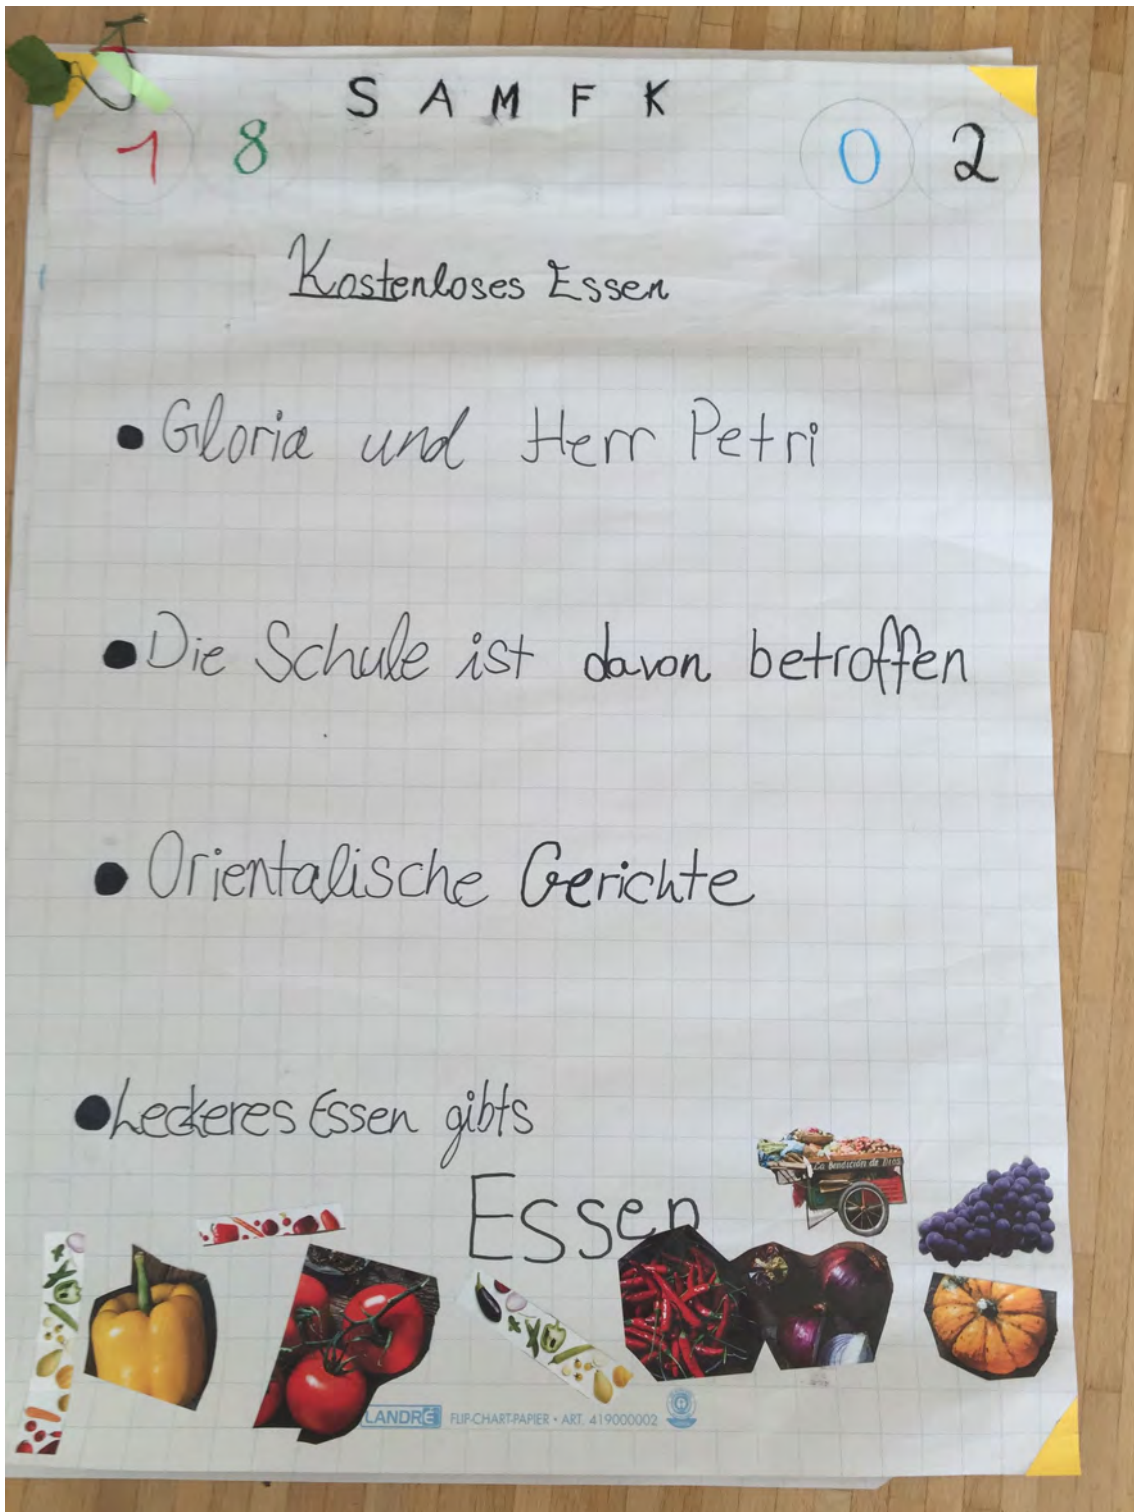 S A M F K
1 8 0 2
Kostenloses Essen
• Gloria und Herr Petri
• Die Schule ist davon betroffen
• Orientalische Gerichte
• Leckeres Essen gibts
Essen
La Bendición de
LANDRÉ FLIP-CHART-PAPIER • ART. 419000002